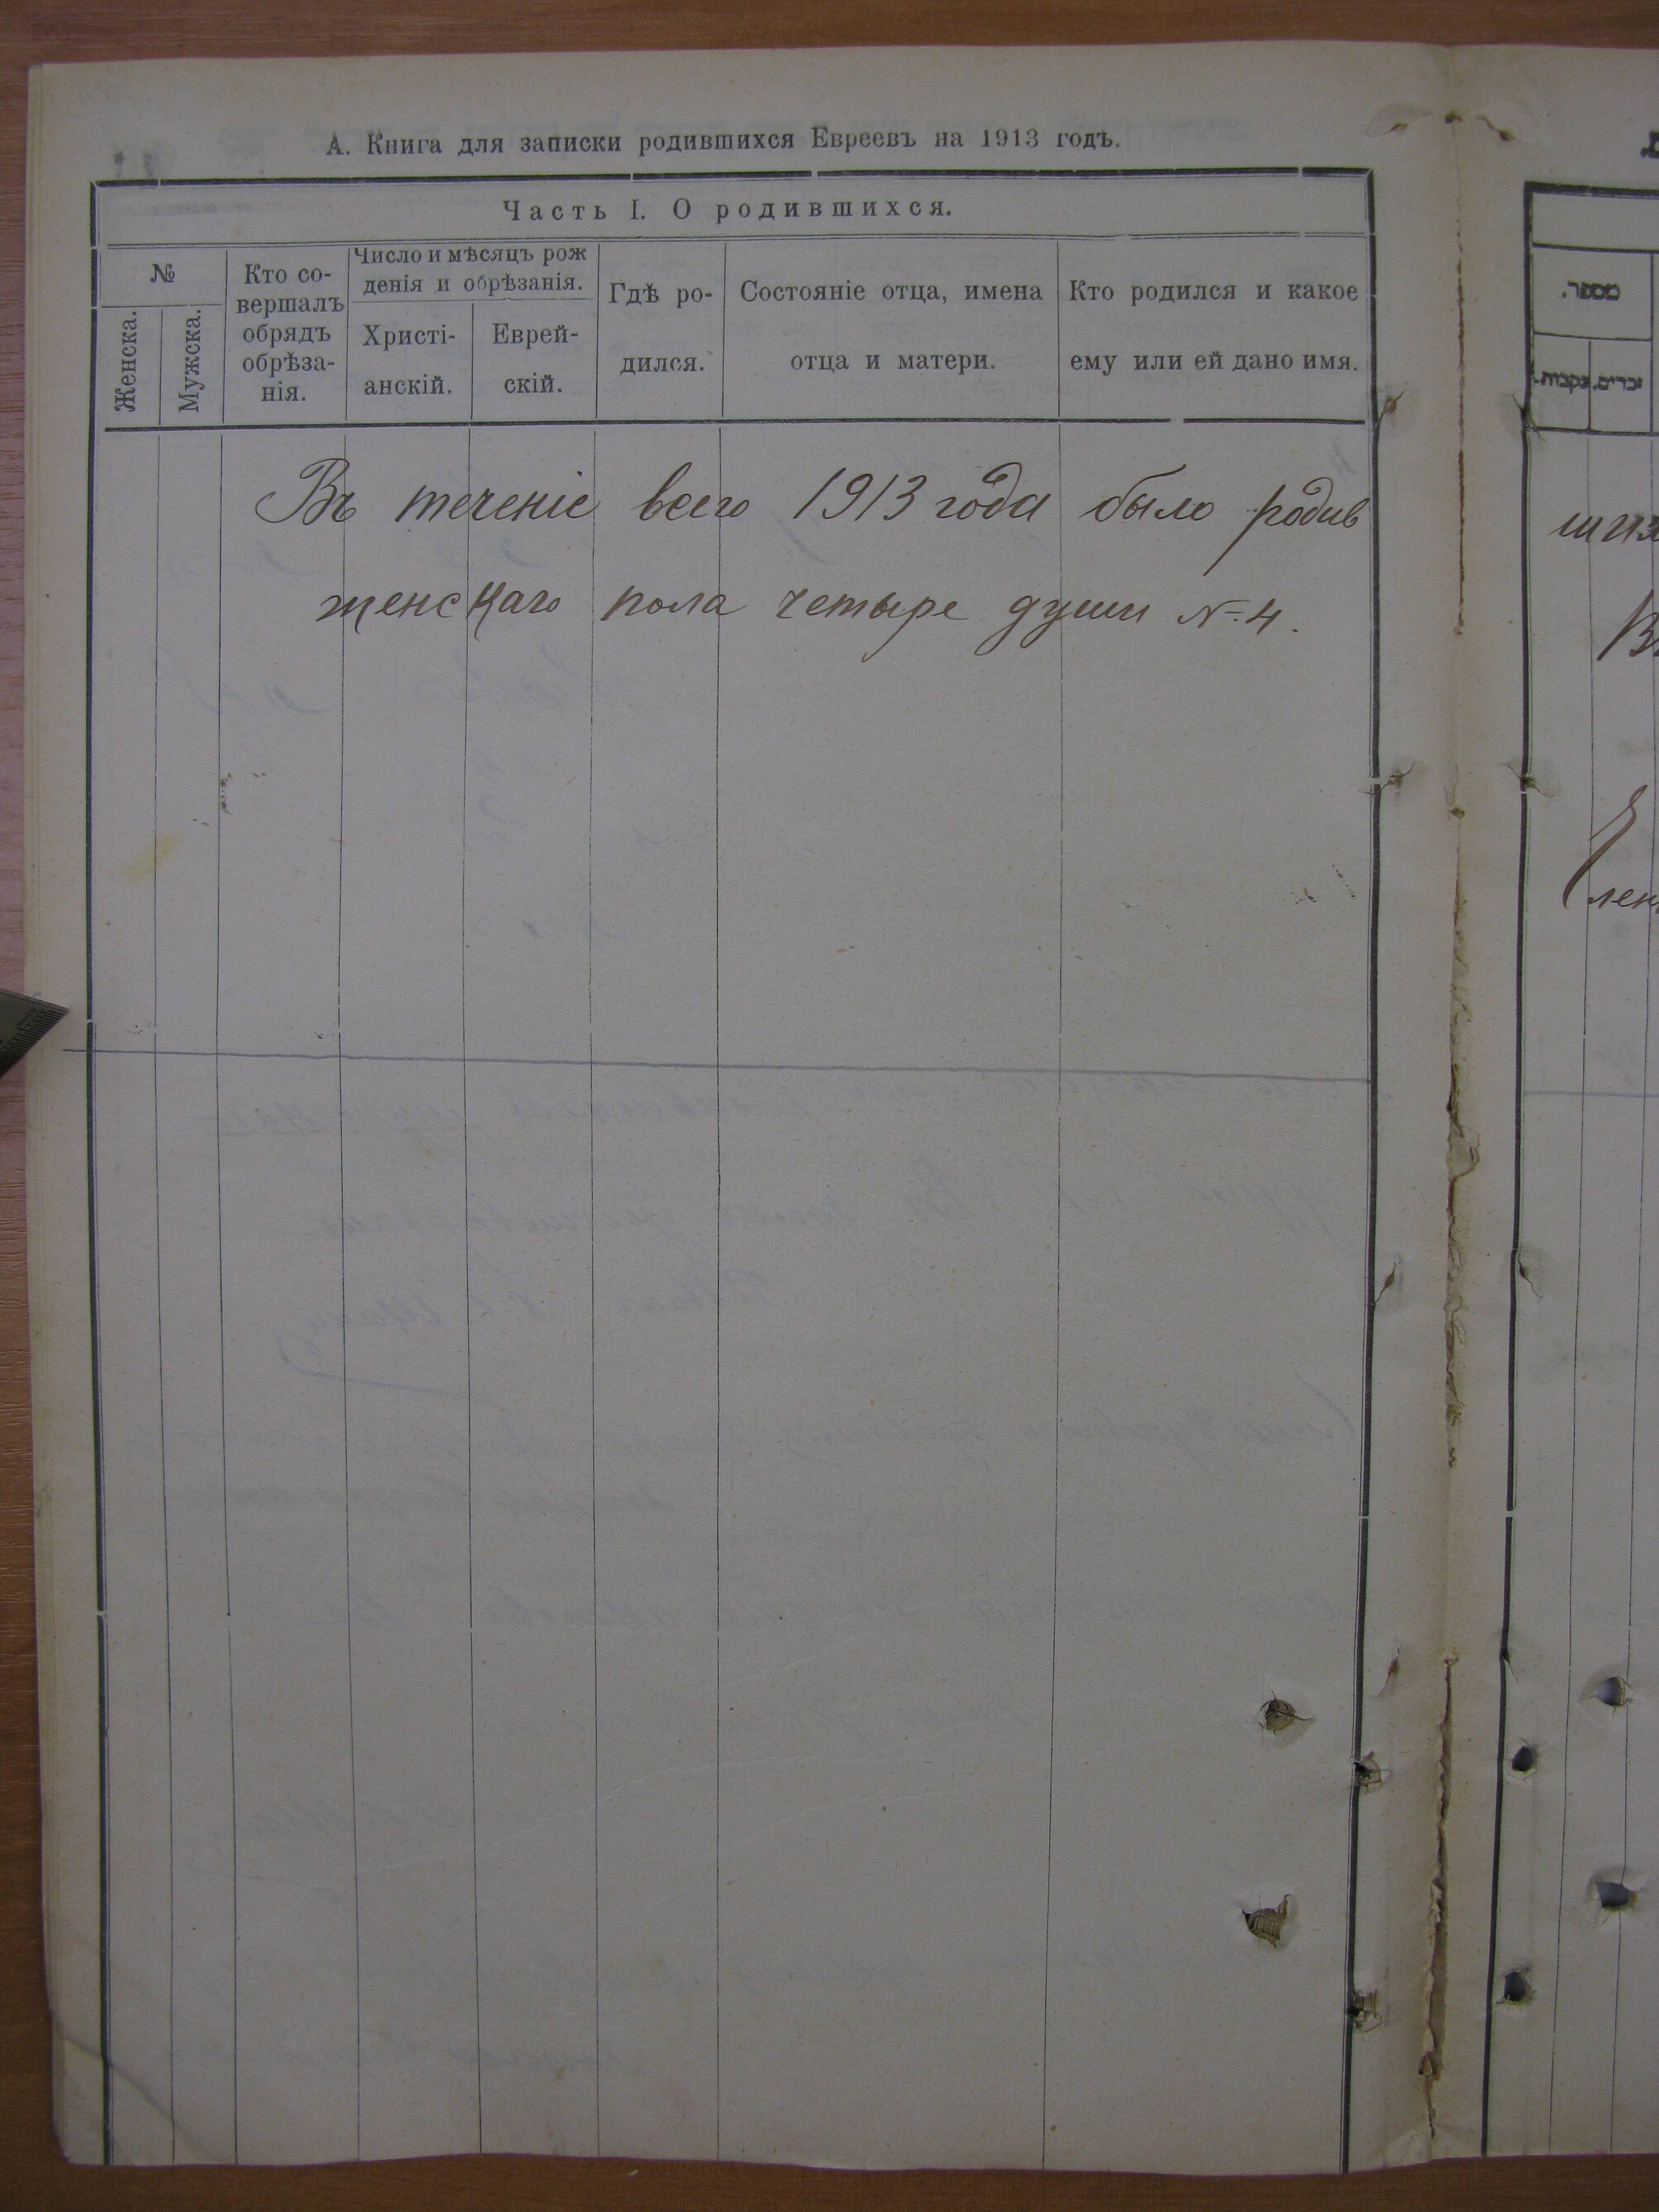 А. Книга для записки родившихся Евреевъ на 1913 годъ.
Часть I. О родившихся.
№
Женска.
Мужска.
Кто со-
вершалъ
обрядъ
обрѣза-
нія.
Число и мѣсяцъ рож
денія и обрѣзанія.
Христі-
анскій.
Еврей-
скій.
Гдѣ ро-
дился.
Состояніе отца, имена
отца и матери.
Кто родился и какое
ему или ей дано имя.
Въ теченіе всего 1913 года было родив
женскаго пола четыре души №4.
מספר.
זכרים.
נקבות.
шихъ
Въ
Член